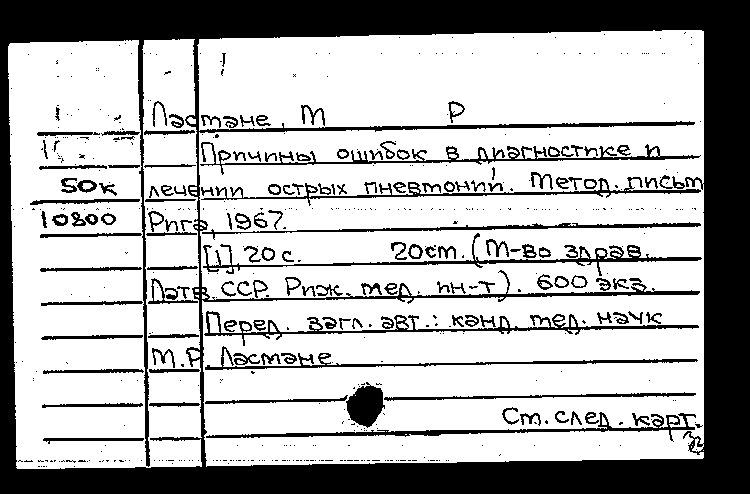 Ластмане, М Р
Причины ошибок в диагностике и
50к лечении острых пневмоний. Метод. письм
10800 Рига, 1967.
[1], 20 с. 20см. (М-во здрав.
Латв. ССР. Риж. мед. ин-т). 600 экз.
Перед. загл. авт.: канд. мед. наук
М.Р. Ластмане.
См. след. карт.